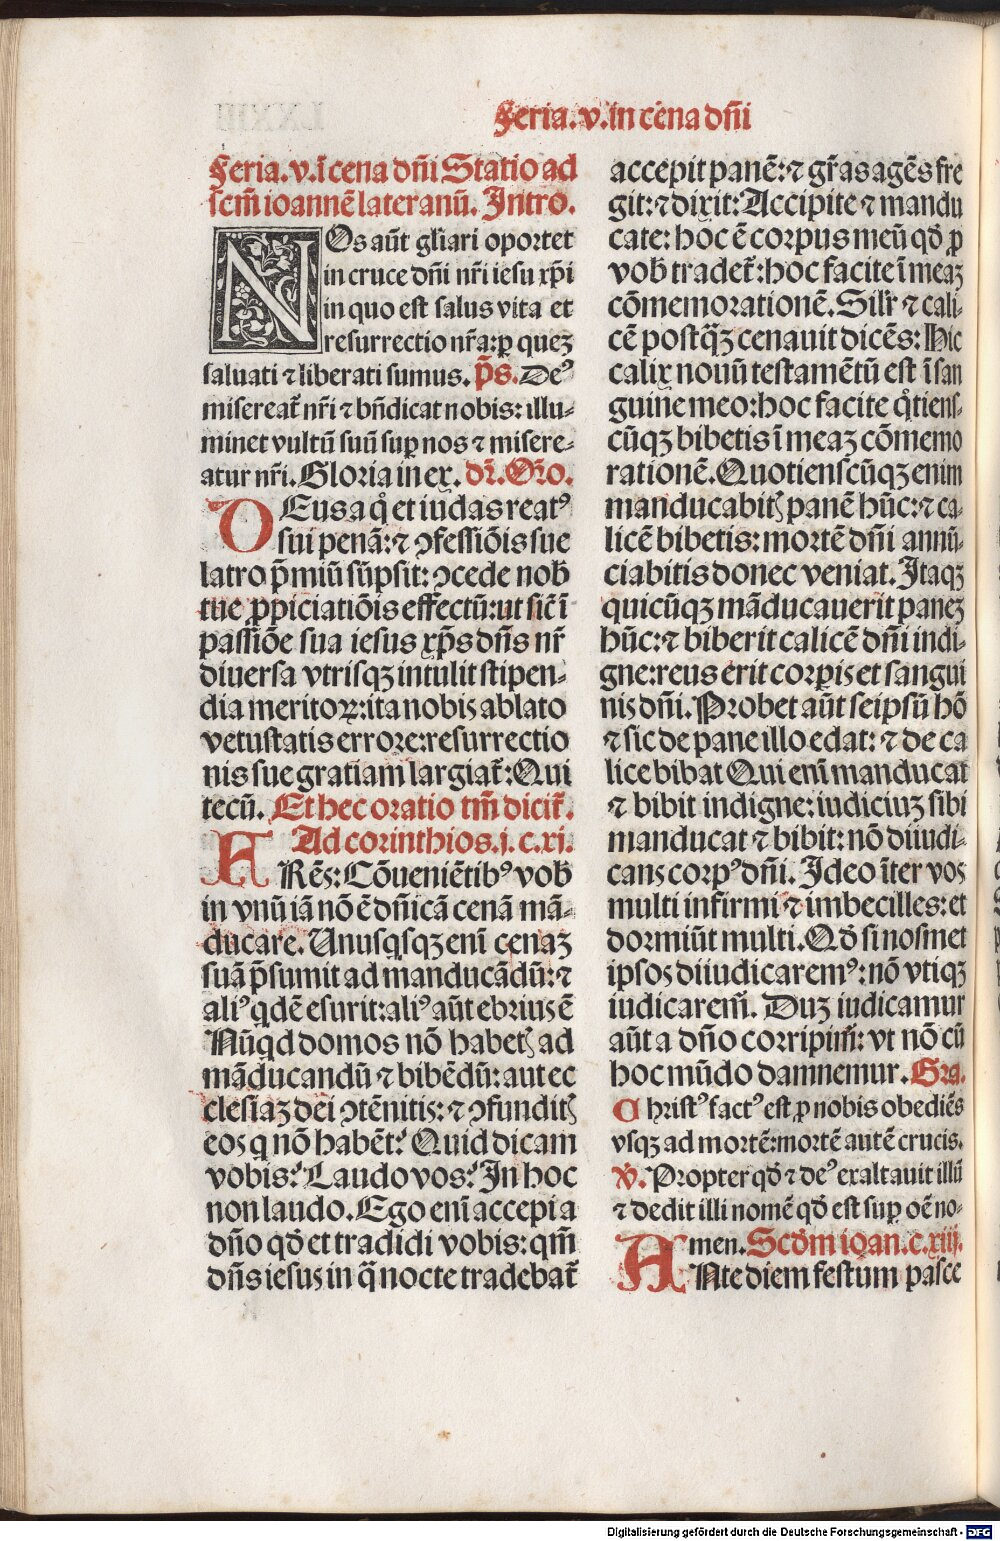 Feria.v.in cena dñi
Feria.v.ī cena dñi Statio ad
scm̄ ioannē lateranū. Intro.
NOs aūt gl̄iari oportet
in cruce dñi nr̄i iesu xp̄i
in quo est salus vita et
resurrectio nr̄a: ꝑ quez
saluati ⁊ liberati sumus. p̄s. Deꝰ
misereat̄ nr̄i ⁊ bn̄dicat nobis: illu-
minet vultū suū suꝑ nos ⁊ misere-
atur nr̄i. Gloria in ex. dr̄. Oro.
DEus a q̊ et iudas reatꝰ
sui penā: ⁊ ꝯfessiōis sue
latro p̄miū sūpsit: ꝯcede nob̄
tue ꝓpiciatiōis effectū: ut sic̄ ī
passiōe sua iesus xp̄s dn̄s nr̄
diuersa vtrisqꝫ intulit stipen-
dia meritoꝝ: ita nobis ablato
vetustatis errore: resurrectio
nis sue gratiam largiat̄: Qui
tecū. Et hec oratio tm̄ dicit̄.
Ad corinthios.j. c.xj.
FRēs: Cōueniētibꝰ vob
in vnū iā nō ē dn̄icā cenā mā-
ducare. Unusqsqꝫ enī cenaꝫ
suā p̄sumit ad manducādū: ⁊
aliꝰ qdē esurit: aliꝰ aūt ebrius ē
Nūqd domos nō habetꝭ ad
māducandū ⁊ bibēdū: aut ec
clesiaꝫ dei ꝯtēnitis: ⁊ ꝯfunditꝭ
eos q nō habēt? Quid dicam
vobis? Laudo vos? In hoc
non laudo. Ego enī accepi a
dn̄o qd̄ et tradidi vobis: qm̄
dn̄s iesus in q̄ nocte tradebat̄
accepit panē: ⁊ gr̄as agēs fre
git: ⁊ dixit: Accipite ⁊ mandu
cate: hoc ē corpus meū qd̄ ꝓ
vob̄ tradet̄: hoc facite ī meaꝫ
cōmemorationē. Silr̄ ⁊ cali-
cē postq̄ꝫ cenauit dicēs: Hic
calix nouū testamētū est ī san
guine meo: hoc facite q̊tiens-
cūqꝫ bibetis ī meaꝫ cōmemo
rationē. Quotienscūqꝫ enim
manducabitꝭ panē hūc: ⁊ ca-
licē bibetis: mortē dn̄i annū-
ciabitis donec veniat. Itaqꝫ
quicūqꝫ māducauerit paneꝫ
hūc: ⁊ biberit calicē dn̄i indi-
gne: reus erit corꝑis et sangui
nis dn̄i. Probet aūt seipsū hō
⁊ sic de pane illo edat: ⁊ de ca
lice bibat Qui enī manducat
⁊ bibit indigne: iudiciuꝫ sibi
manducat ⁊ bibit: nō diiudi-
cans corpꝰ dn̄i. Ideo īter vos
multi infirmi ⁊ imbecilles: et
dormiūt multi. Qd̄ si nosmet
ipsos diiudicaremꝰ: nō vtiqꝫ
iudicarem̄. Duꝫ iudicamur
aūt a dn̄o corripim̄: vt nō cū
hoc mūdo damnemur. Gra.
Christꝰ factꝰ est ꝓ nobis obediēs
vsqꝫ ad mortē: mortē autē crucis.
℣. Propter qd̄ ⁊ deꝰ exaltauit illū
⁊ dedit illi nomē qd̄ est suꝑ oē no-
men. Scd̄m ioan.c.xiij.
ANte diem festum pasce
Digitalisierung gefördert durch die Deutsche Forschungsgemeinschaft - DFG